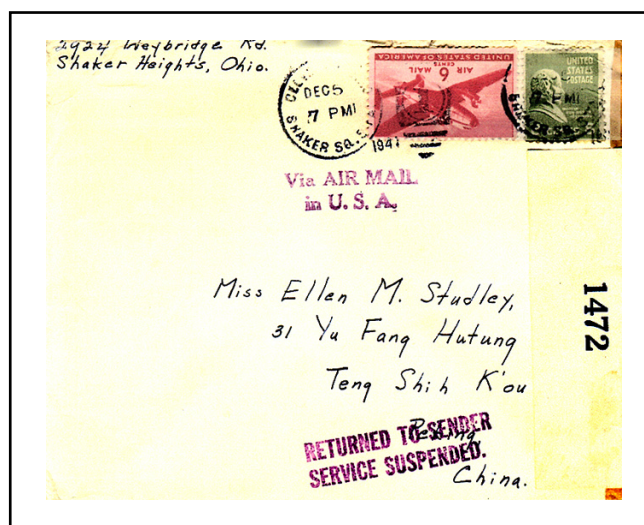 2924 Weybridge Rd.
Shaker Heights, Ohio.
DEC 5
7 PM
SHAKER SQ. STA.
1941
UNITED STATES OF AMERICA
AIR MAIL
6 CENTS
UNITED
STATES
POSTAGE
PM
SHAKER SQ.
Via AIR MAIL
in U. S. A.
Miss Ellen M. Studley,
31 Yu Fang Hutung
Teng Shih K'ou
Peking,
China.
RETURNED TO SENDER
SERVICE SUSPENDED.
1472